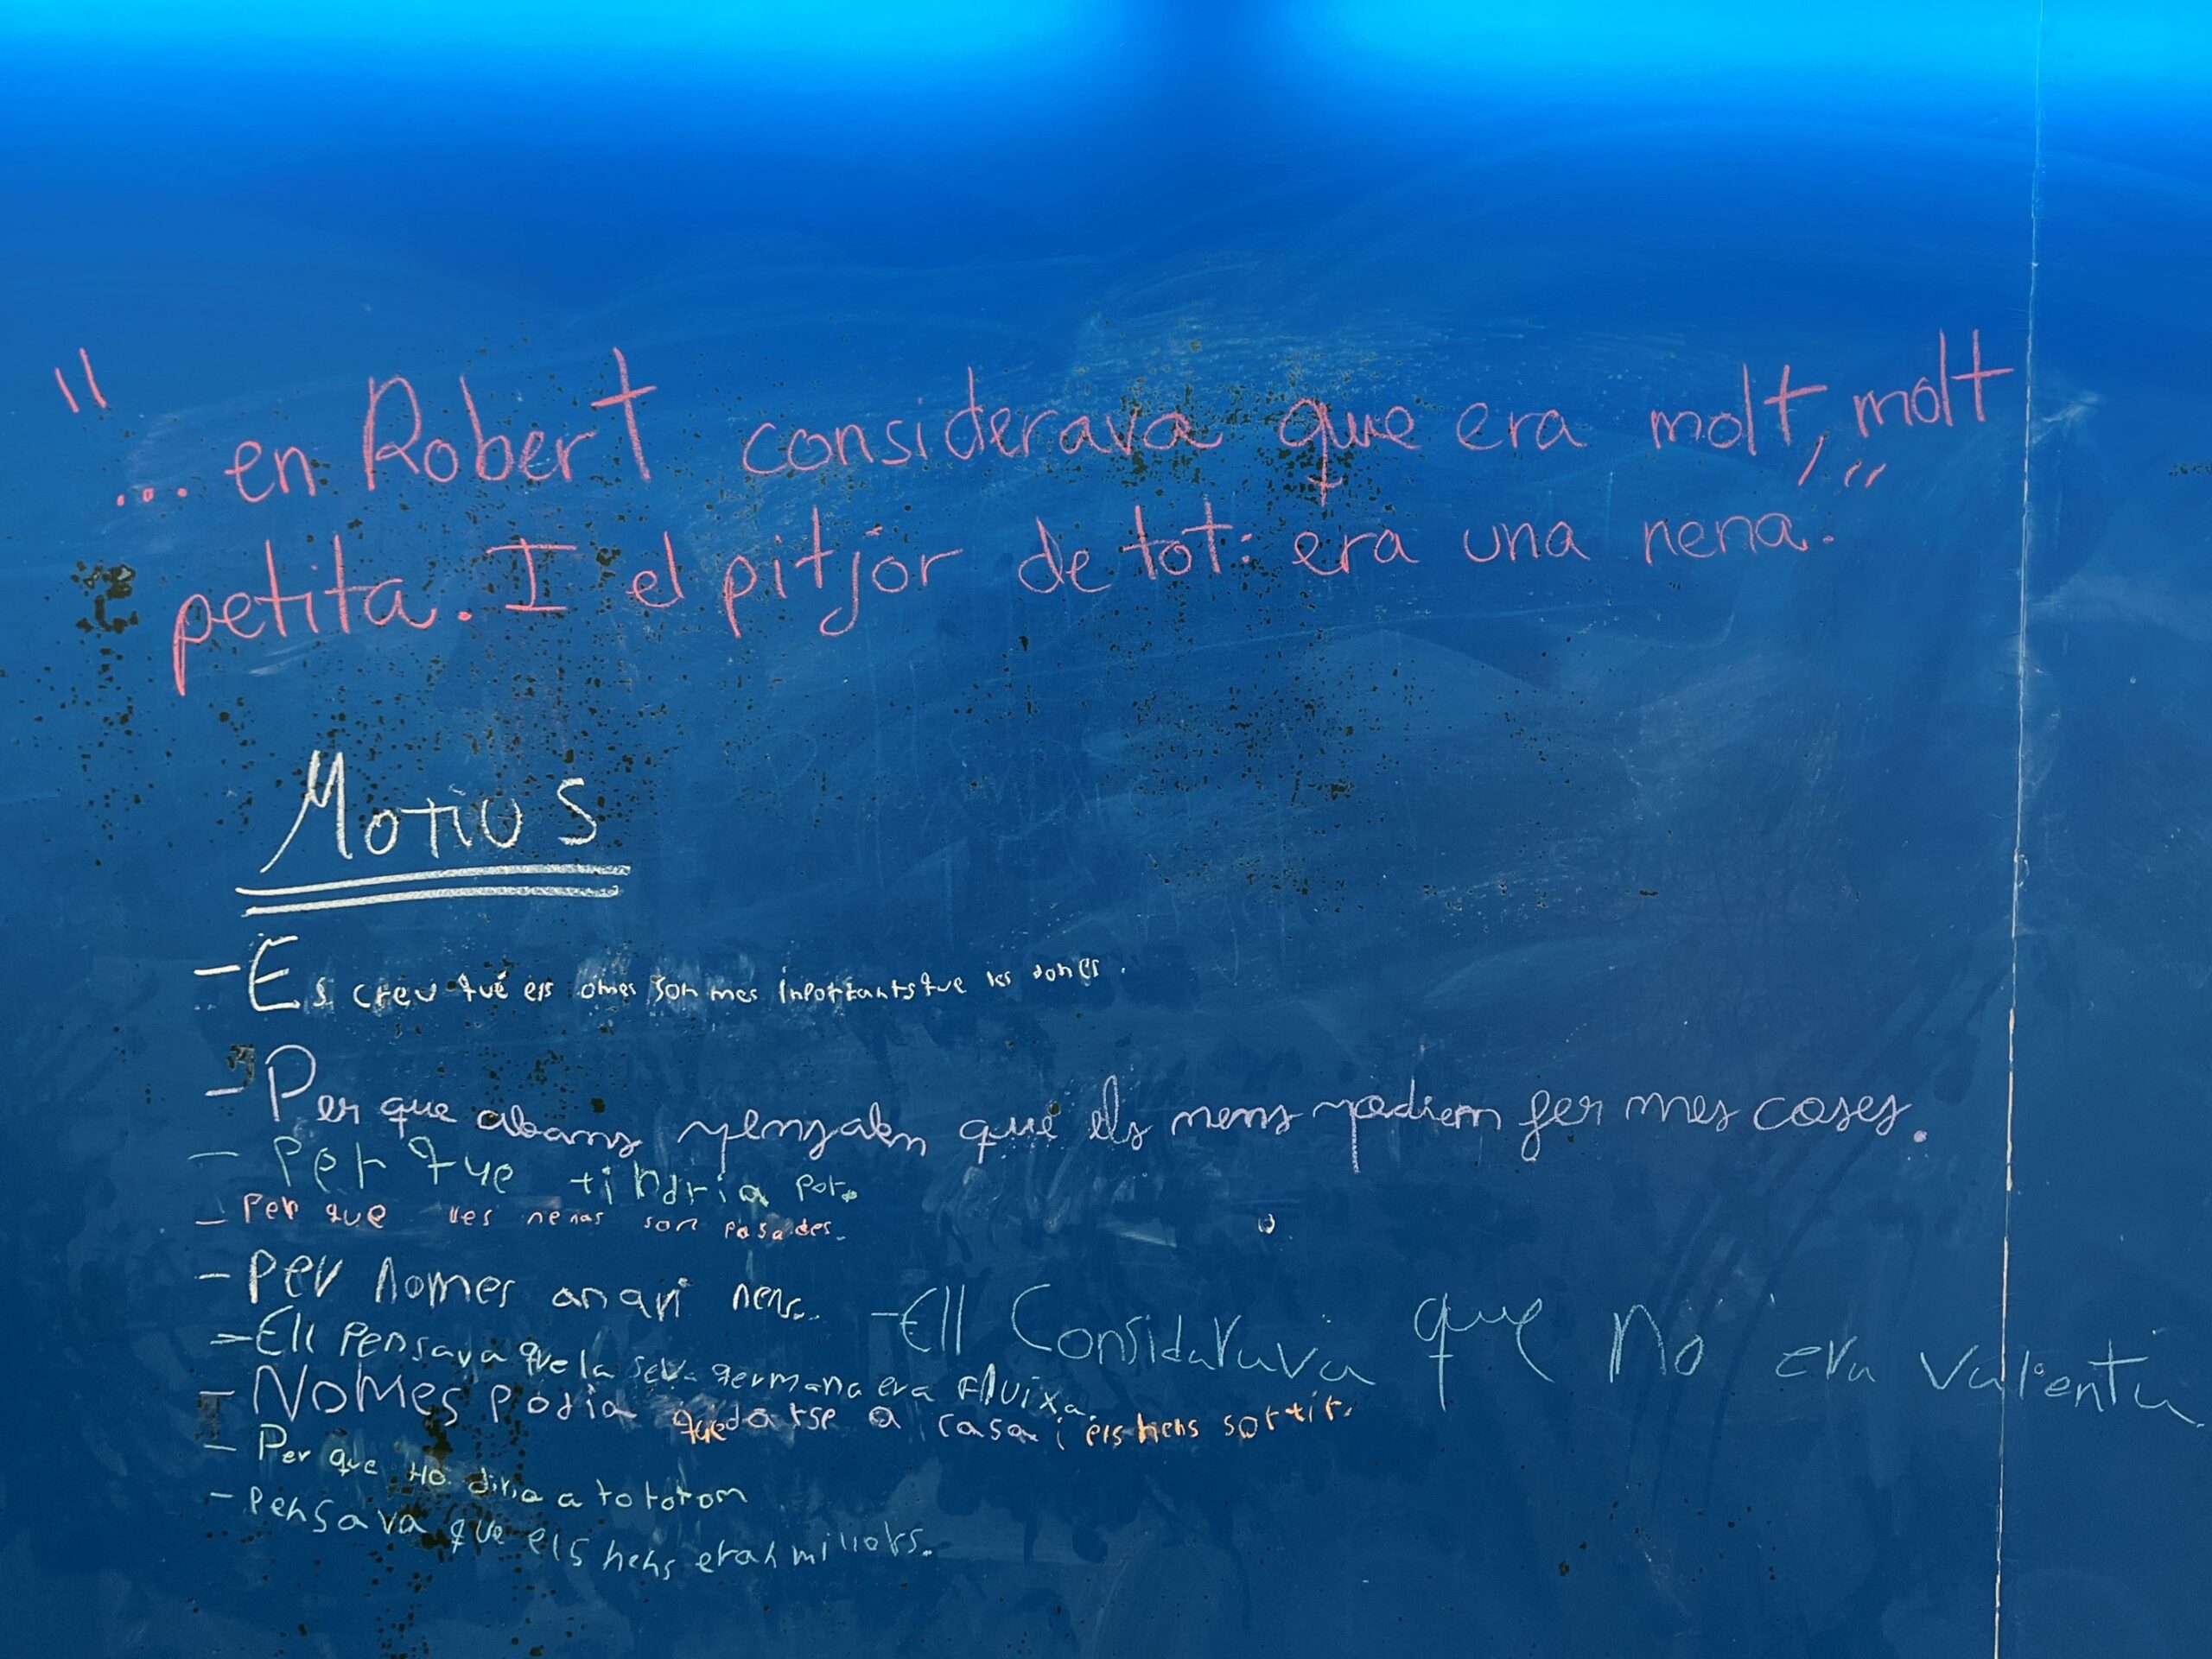 "... en Robert considerava que era molt, molt
petita. I el pitjor de tot: era una nena."
Motius
- Es creu qué els omes son mes inportants que les dones.
- Per que abans pensaben qué els nens podiem fer mes coses.
- Per que tindria por.
- Per que les nenas son pasades.
- per nomes anari nens.
- Ell Pensava que la seva germana era fluixa.
- Ell Considarava que no era valenta.
- Nomes podia quedarse a casa i els nens sortir.
- Per que ho diria a tototom
- Pensava que els nens eran millors.